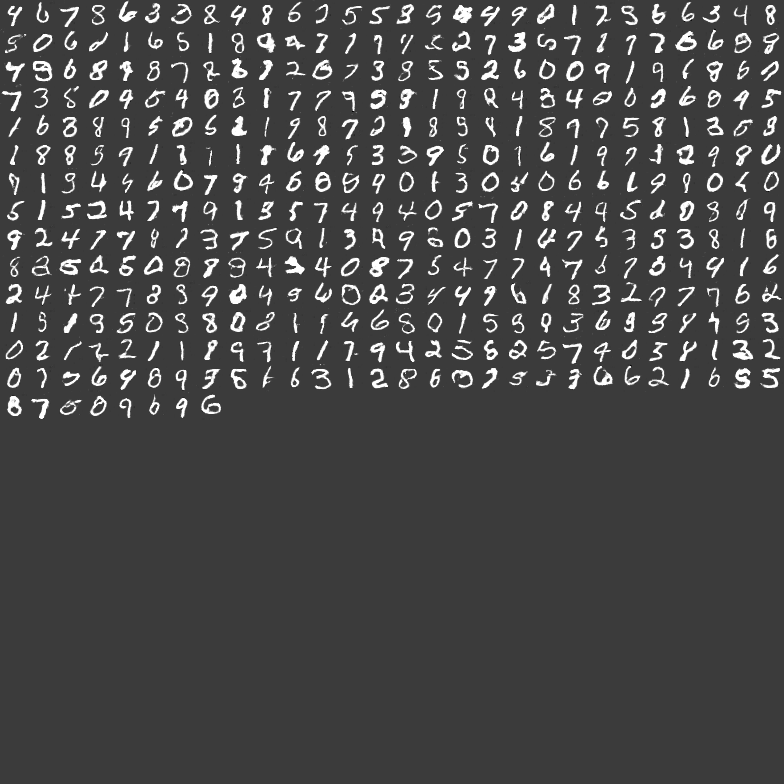 4 6 7 8 6 3 3 8 4 8 6 0 5 5 8 5 4 9 0 1 2 5 6 6 3 4 8
5 0 6 1 6 5 1 8 9 7 7 9 4 5 2 7 3 7 1 7 7 8 6 8 8
7 9 6 8 9 8 7 8 8 1 2 8 7 3 8 5 5 2 6 0 0 9 1 9 6 8 6 0
7 3 8 0 9 6 4 8 8 1 7 7 9 5 9 1 9 8 4 3 4 0 0 6 8 9 5
1 6 8 8 9 5 0 5 2 1 9 8 7 2 8 8 5 4 1 8 9 7 5 8 1 3 8 8
1 8 8 5 9 1 1 1 8 6 9 5 3 3 9 5 0 1 6 1 9 7 2 9 8 0
9 1 9 4 4 6 0 7 9 4 6 8 8 9 0 1 3 0 0 6 6 6 9 9 0 6 0
5 1 5 2 4 7 7 9 1 3 5 7 4 9 4 0 5 7 0 8 4 9 5 8 8 8 9
9 2 4 7 7 8 7 3 7 5 9 1 3 9 9 6 0 3 1 4 7 5 3 5 3 8 1 8
8 8 5 2 6 0 8 9 9 4 4 0 8 7 5 4 7 7 9 7 6 7 8 4 9 1 6
2 4 7 7 8 9 9 0 4 9 6 0 2 3 4 4 9 6 1 8 3 2 7 7 7 6 2
1 9 1 9 5 0 9 8 0 8 1 1 4 6 8 0 1 5 8 9 3 6 9 3 9 9 5 3
0 2 1 2 2 1 1 8 9 7 1 1 7 9 4 2 5 6 2 5 7 4 0 3 8 1 3 2
0 7 5 6 9 8 9 3 8 6 6 3 1 2 8 6 0 7 5 3 3 6 6 2 1 6 5 5
8 7 5 8 9 6 9 6